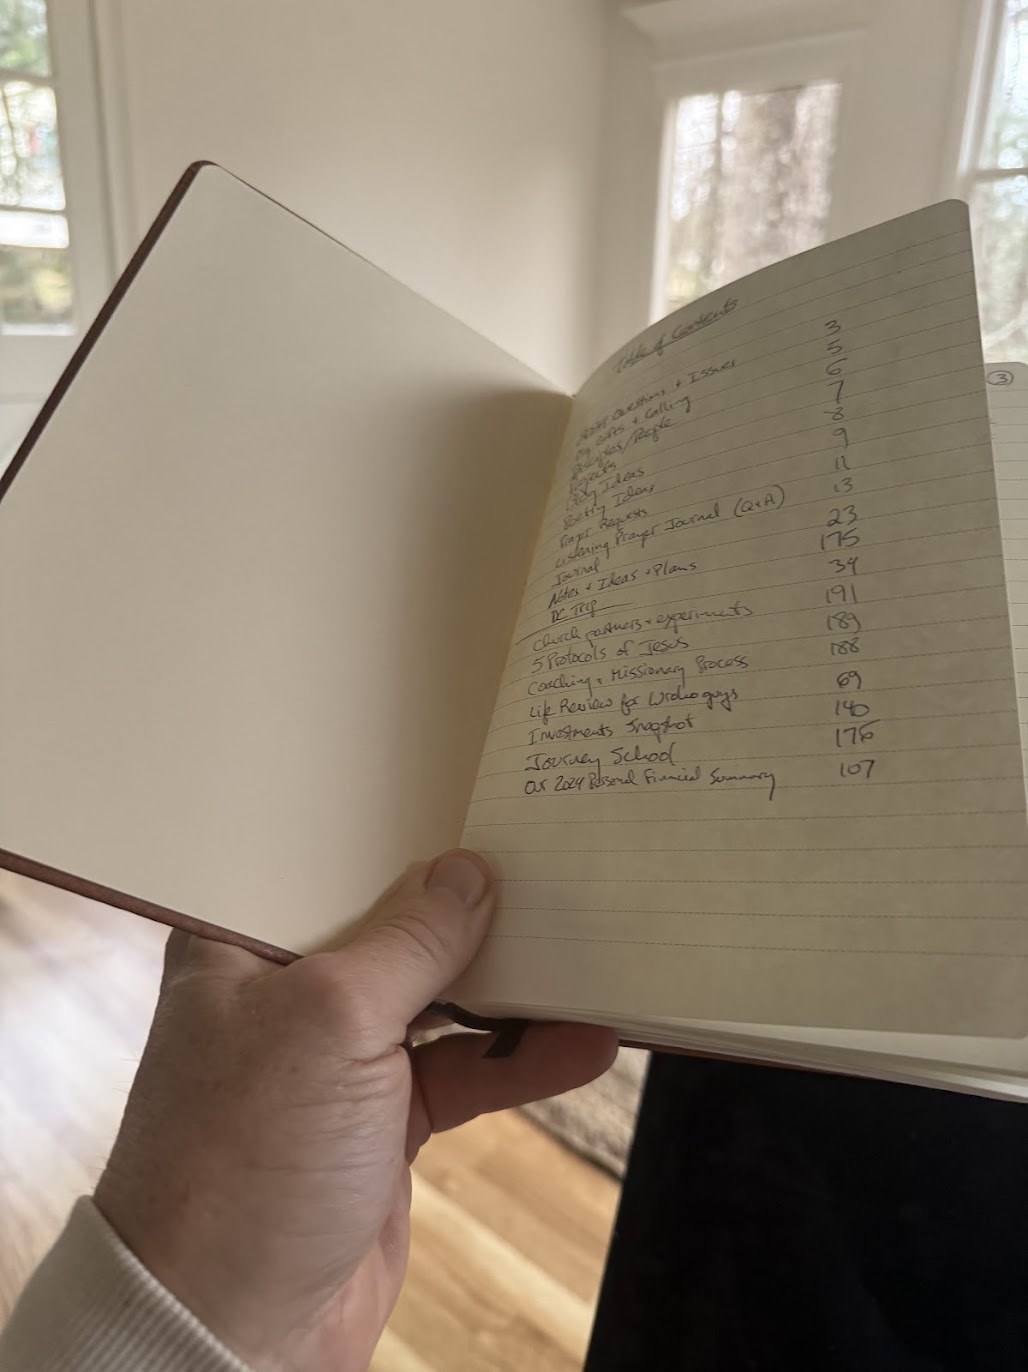 Table of Contents
Questions + Issues 3
My Gifts + Calling 5
Disciples/People 6
Projects 7
Blog Ideas 8
Poetry Ideas 9
Prayer Requests 11
Listening Prayer Journal (Q+A) 13
Journal 23
Notes + Ideas + Plans 175
DC Trip 34
Church partners + experiments 191
5 Protocols of Jesus 189
Coaching + Missionary Process 188
Life Review for guys 69
Investments Snapshot 140
Journey School 176
Our 2024 Personal Financial Summary 107
3